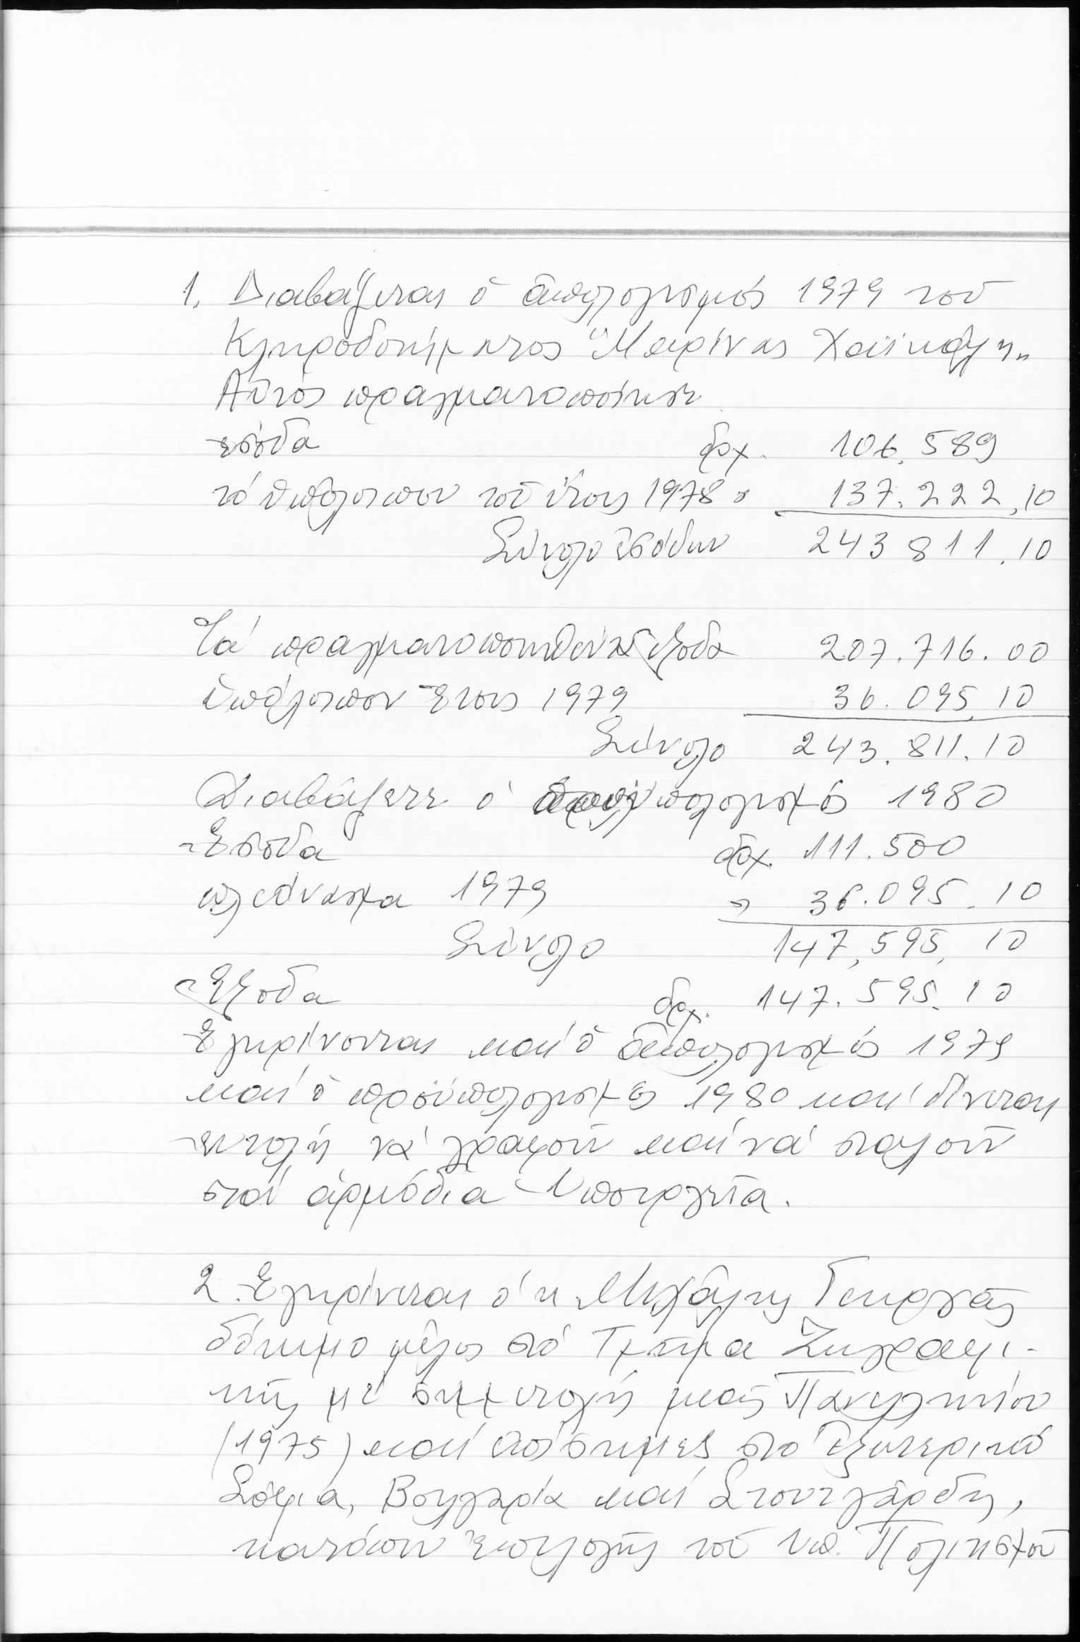 1. Διαβάζεται ὁ ἀπολογισμός 1979 τοῦ
Κληροδοτήματος "Μαρίνας
Αὐτός πραγματοποίησε
ἔσοδα δρχ. 106.589
τό ὑπόλοιπον τοῦ ἔτους 1978 " 137.222,10
Σύνολο ἐσόδων 243 811.10
Τά πραγματοποιηθέντα ἔξοδα 207.716.00
ὑπόλοιπον ἔτους 1979 36.095,10
Σύνολο 243.811.10
Διαβάζετε ὁ προϋπολογισμός 1980
Ἔσοδα δρχ. 111.500
πλεόνασμα 1979 " 36.095.10
Σύνολο 147,595,10
Ἔξοδα δρχ. 147.595.10
Ἐγκρίνονται καί ὁ ἀπολογισμός 1979
καί ὁ προϋπολογισμός 1980 καί δίνεται
ἐντολή νά γραφοῦν καί νά σταλοῦν
στά ἁρμόδια Ὑπουργεῖα.
2. Ἐγκρίνεται ὁ κ Μιχάλης Γεωργᾶς
δόκιμο μέλος στό Τμῆμα Ζωγραφι-
κῆς μέ συμμετοχή μιᾶς Πανελληνίου
(1975) καί στό ἐξωτερικό
Σόφια, Βουλγαρία καί Στουτγάρδη,
κατόπιν ἐπιλογῆς τοῦ Ὑπ. Πολιτισμοῦ